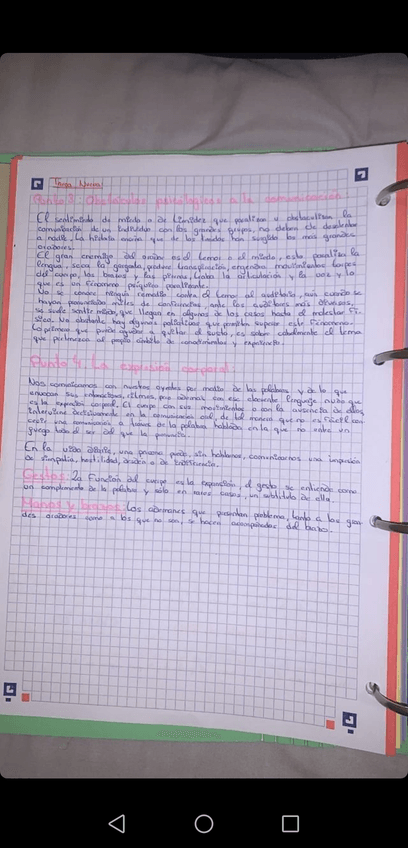 Punto 3: Obstáculos psicológicos a la comunicación:
El sentimiento de miedo o de timidez que paraliza u obstaculiza la
comunicación de un individuo con los grandes grupos, no debe de desalentar
a nadie. La historia enseña que de los tímidos han surgido los más grandes
oradores.
El gran enemigo del orador es el temor o el miedo, esto paraliza la
lengua, seca la garganta, produce transpiración, engendra movimientos torpes
del cuerpo, los brazos y las piernas, traba la articulación y la voz y lo
que es un fenómeno psíquico paralizante.
No se conoce ningún remedio contra el temor al auditorio, aun cuando se
hayan pronunciado miles de conferencias, ante los auditorios más diversos,
se suele sentir miedo, que llegan en algunos de los casos hasta el malestar fí-
sico. No obstante, hay algunos paliativos que permiten superar este fenómeno.
Lo primero que puede ayudar a quitar el susto, es saber cabalmente el tema
que pertenezca al propio ámbito de conocimientos y experiencia.
Punto 4. La expresión corporal:
Nos comunicamos con nuestros oyentes por medio de las palabras y de lo que
anuncian sus entonaciones, ritmos, pero además con ese elocuente lenguaje mudo que
es la expresión corporal. El cuerpo con sus movimientos o con la ausencia de ellos
interviene decisivamente en la comunicación oral, de tal manera que no es fácil con-
cebir una comunicación a través de la palabra hablada en la que no entre en
juego todo el ser del que la pronuncia.
En la vida diaria, una persona puede, sin hablarnos, comunicarnos una impresión
de simpatía, hostilidad, desdén o de indiferencia.
Gestos: La función del cuerpo es la expresión, el gesto se entiende como
un complemento de la palabra y sólo en raros casos, un sustituto de ella.
Manos y brazos: Los ademanes que presentan problema, tanto a los gran-
des oradores como a los que no son, se hacen acompañados del brazo.